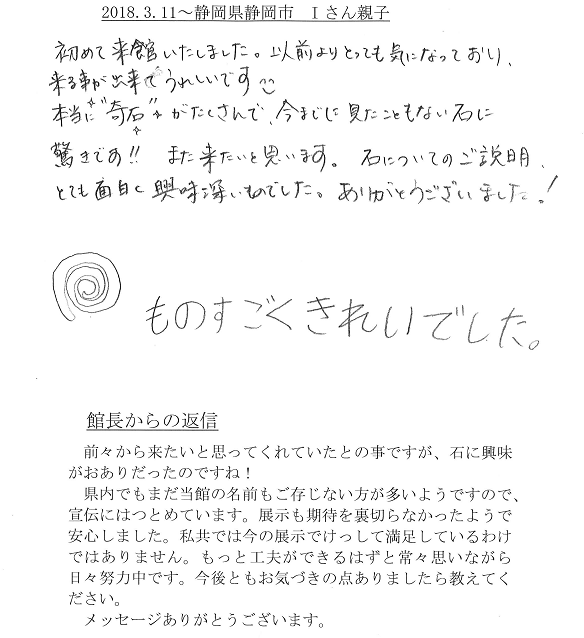 2018.3.11～静岡県静岡市　Iさん親子
初めて来館いたしました。以前よりとっても気になっており、
来る事が出来てうれしいです
本当に"奇石"がたくさんで、今までに見たこともない石に
驚きです!! また来たいと思います。石についてのご説明、
とても面白く興味深いものでした。ありがとうございました!
ものすごくきれいでした。
館長からの返信
前々から来たいと思ってくれていたとの事ですが、石に興味
がおありだったのですね！
県内でもまだ当館の名前もご存じない方が多いようですので、
宣伝にはつとめています。展示も期待を裏切らなかったようで
安心しました。私共では今の展示でけっして満足しているわけ
ではありません。もっと工夫ができるはずと常々思いながら
日々努力中です。今後ともお気づきの点ありましたら教えてく
ださい。
メッセージありがとうございます。